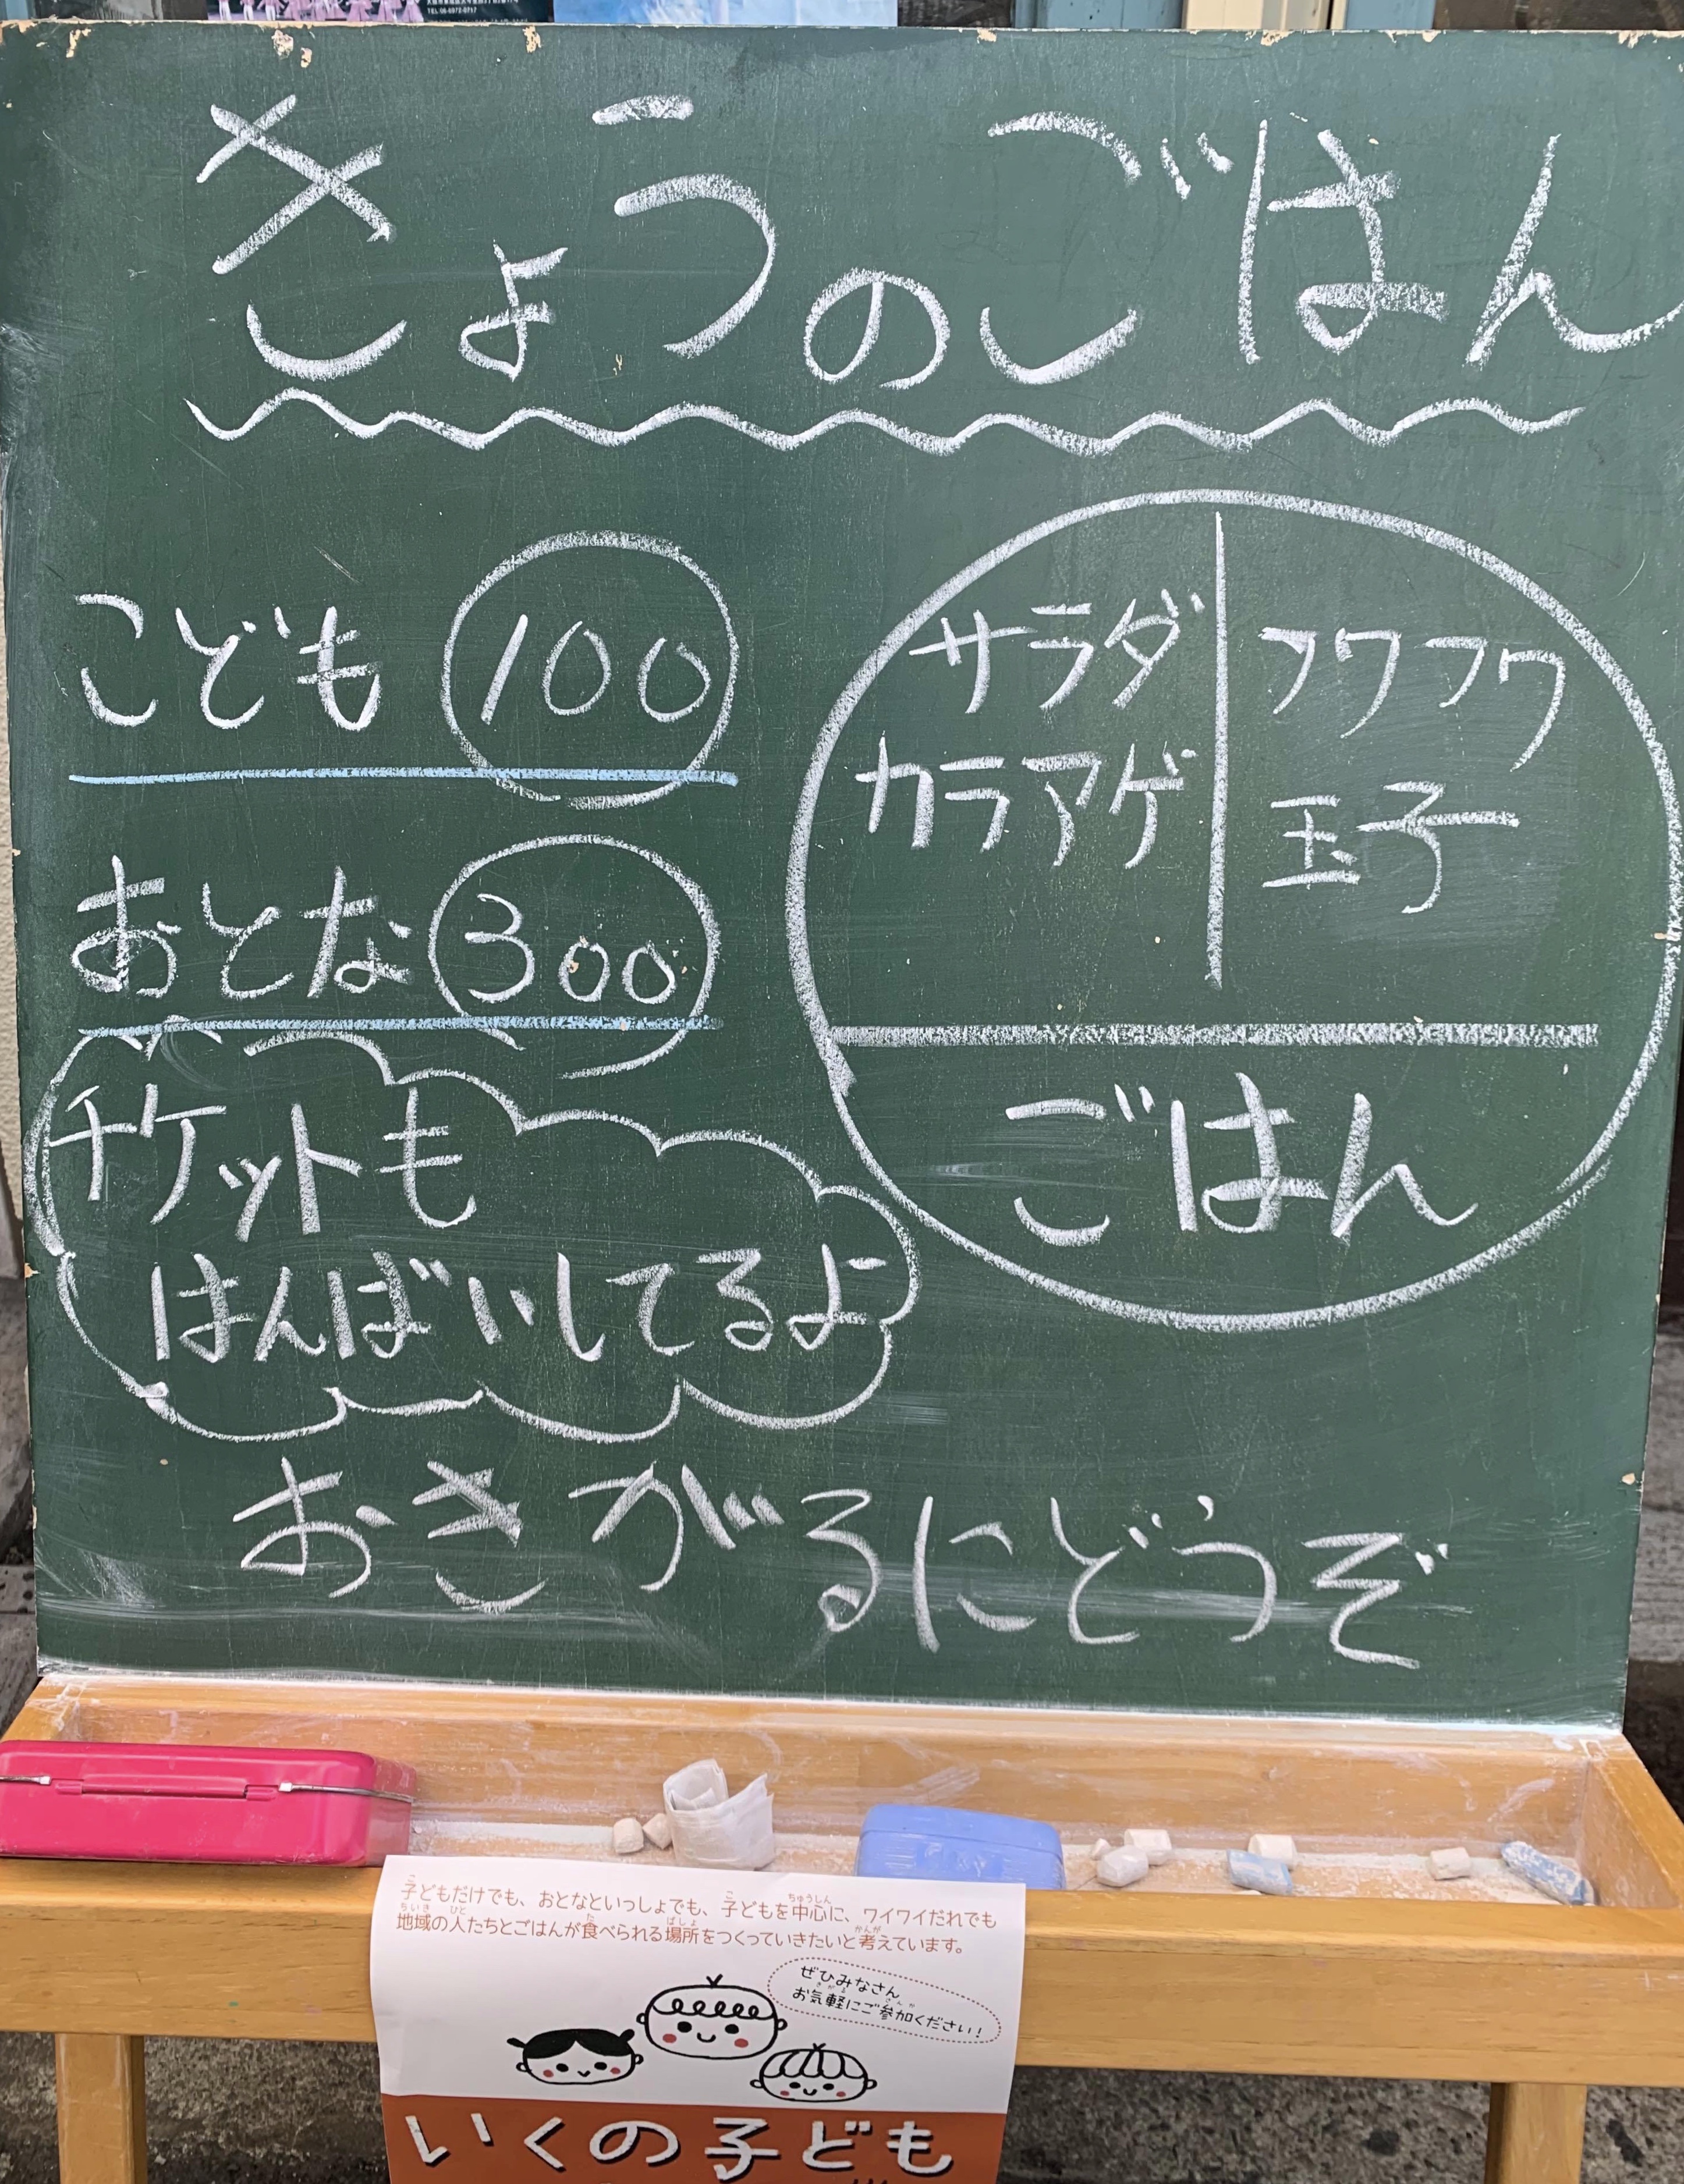 TEL 06-6972-0717
きょうのごはん
こども 100
おとな 300
チケットも
はんばいしてるよ
サラダ
カラアゲ
フワフワ
玉子
ごはん
おきがるにどうぞ
子どもだけでも、おとなといっしょでも、子どもを中心に、ワイワイだれでも
地域の人たちとごはんが食べられる場所をつくっていきたいと考えています。
ぜひみなさん
お気軽にご参加ください!
いくの子ども